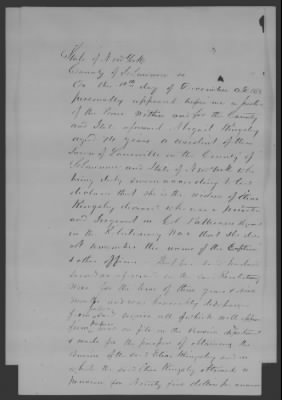 State of New York
County of Delaware ss
On the 10th day of December AD 18
personally appeared before me a justice
of the Peace within and for the County
and State aforesaid Abigail Kingsley
aged 74 years a resident of the
Town of in the County of
Delaware and State of New York who
being duly sworn according to law
declares that she is the widow of Elias
Kingsley deceased who was a private
and Sergeant in Col
in the Revolutionary War that she does
not remember the name of the Captain
& other officers That her said husband
served as aforesaid in the said Revolutionary
War for the term of three years & nine
months and was honorably discharged
from said service all of which will appear
from papers now on file in the pension department
& made for the purpose of obtaining the
Pension of the said Elias Kingsley and in
which the said Elias Kingsley obtained a
pension for Ninety five dollars per annum